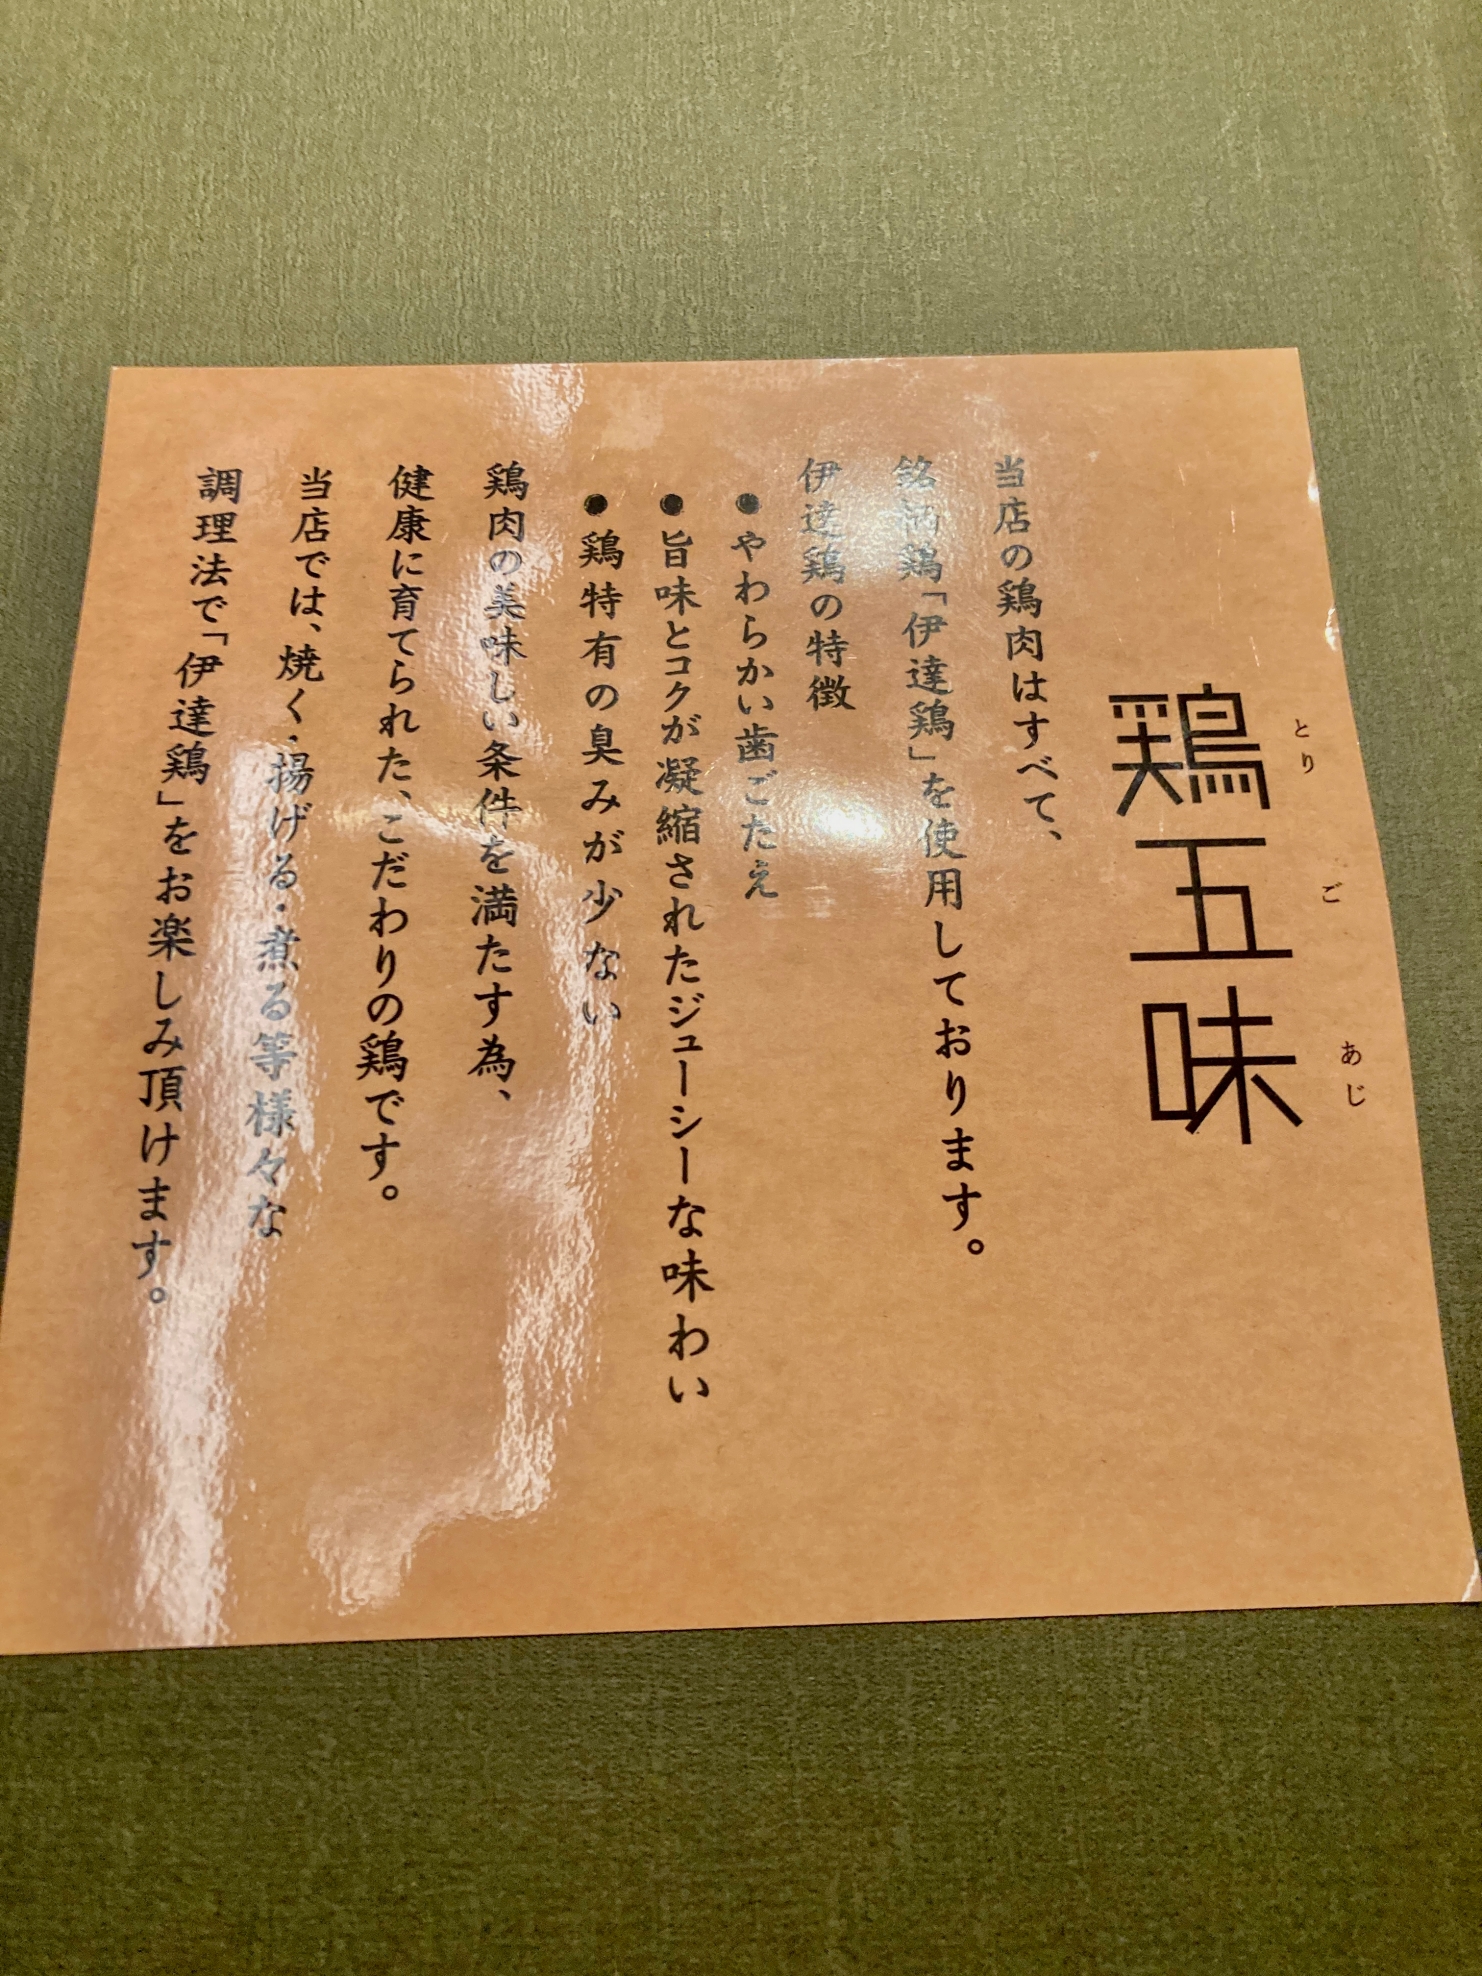 鶏五味
とりごあじ
当店の鶏肉はすべて、
銘柄鶏「伊達鶏」を使用しております。
伊達鶏の特徴
●やわらかい歯ごたえ
●旨味とコクが凝縮されたジューシーな味わい
●鶏特有の臭みが少ない
鶏肉の美味しい条件を満たす為、
健康に育てられた、こだわりの鶏です。
当店では、焼く・揚げる・煮る等様々な
調理法で「伊達鶏」をお楽しみ頂けます。